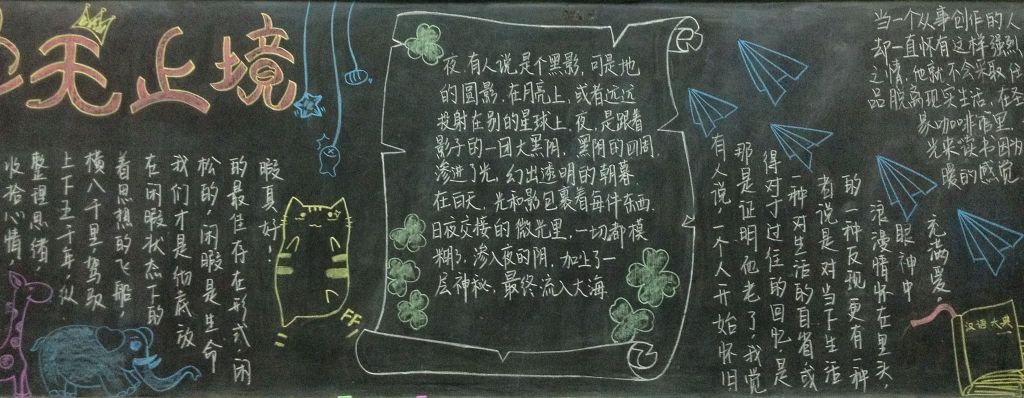 无止境
收拾心情，
整理思绪，
上下五千年，纵
横八千里，驾驭
着思想的飞船，
在闲暇状态下的
我们才是彻底放
松的，闲暇是生命
的最佳存在形式闲
暇真好，
夜，有人说，是个黑影，可是地
的圆影，在月亮上，或者远远
投射在别的星球上，夜，是跟着
影子的一团大黑阴，黑阴的四周，
渗进了光，幻出透明的朝暮
在白天，光和影包裹着每件东西，
日夜交接的微光里，一切都模
糊了，渗入夜的阴，加上了一
层神秘，最终流入大海
有人说，一个人开始怀旧
那是证明他老了，我觉
得对于过往的回忆是
一种对生活的自省或
者说是对当下生活
的一种反现，更有一种
浪漫情怀在里头，
眼神中
充满爱，
当一个从事创作的人
却一直怀有这样强烈
之情，他就不会采取
品脱离现实生活，在
易咖啡店里，
光来读书因为
暖的感觉
FF
汉语大典